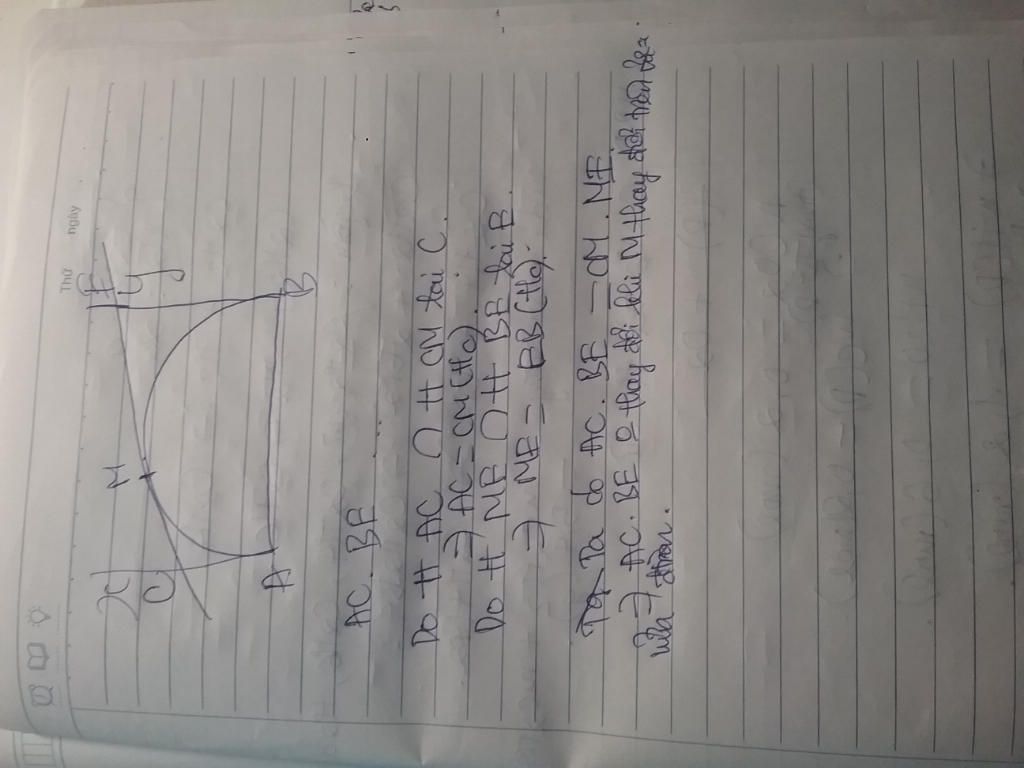 Thứ
ngày
x
E
y
M
C
A
B
AC . BE
Do tt AC ∩ tt CM tại C.
⇒ AC = CM (t/c)
Do tt ME ∩ tt BE tại E.
⇒ ME = EB (t/c).
Ta có AC . BE = CM . ME
⇒ AC . BE o thay đổi khi M thay đổi trên
nửa đtròn.